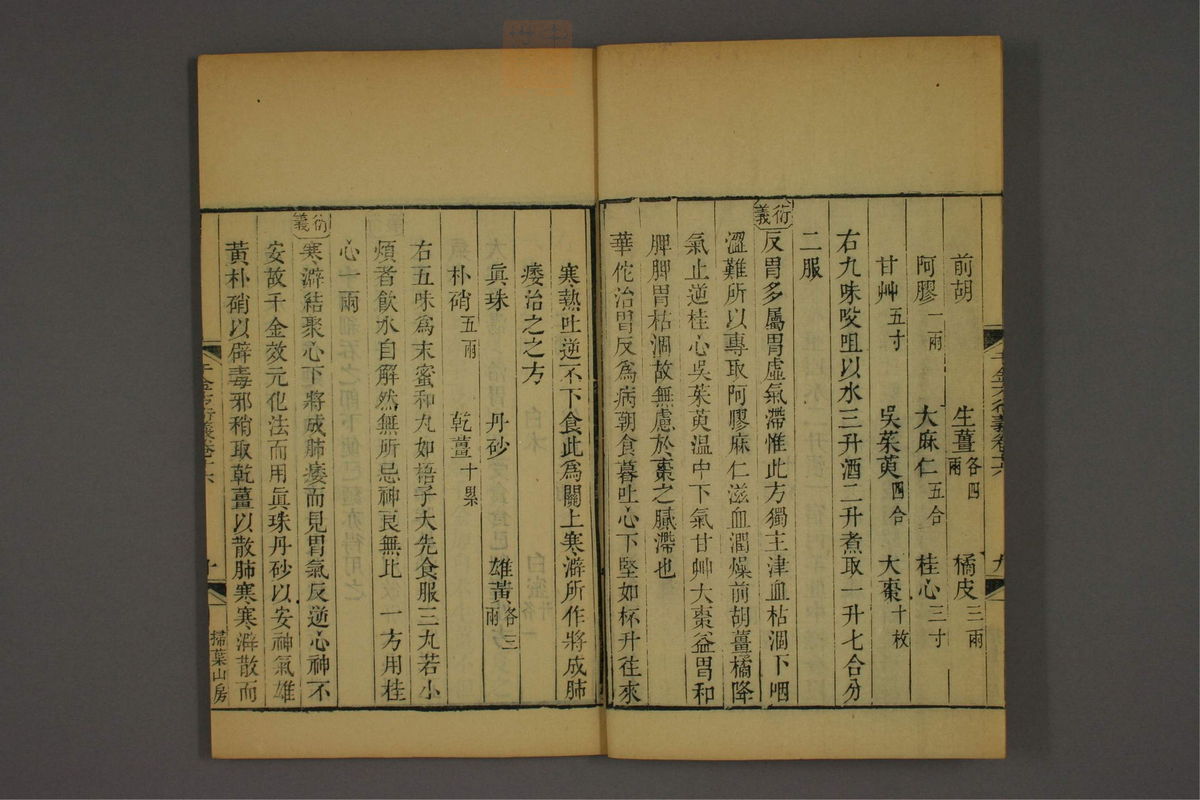 前胡 生薑各四兩 橘皮三兩
阿膠一兩 大麻仁五合 桂心三寸
甘艸五寸 吳茱萸四合 大棗十枚
右九味㕮咀以水三升酒二升煮取一升七合分
二服
衍義
反胃多屬胃虛氣滯惟此方獨主津血枯涸下咽
澀難所以專取阿膠麻仁滋血潤燥前胡薑橘降
氣止逆桂心吳茱萸溫中下氣甘艸大棗益胃和
脾脾胃枯涸故無慮於棗之膩滯也
華佗治胃反為病朝食暮吐心下堅如杯升往來
寒熱吐逆不下食此為關上寒澼所作將成肺
痿治之之方
眞珠 丹砂 雄黃各三兩
朴硝五兩 乾薑十累
右五味為末蜜和丸如梧子大先食服三丸若小
煩者飲水自解然無所忌神良無比 一方用桂
心一兩
衍義
寒澼結聚心下將成肺痿而見胃氣反逆心神不
安故千金效元化法而用眞珠丹砂以安神氣雄
黃朴硝以辟毒邪稍取乾薑以散肺寒寒澼散而
千金方衍義卷十六
十
掃葉山房